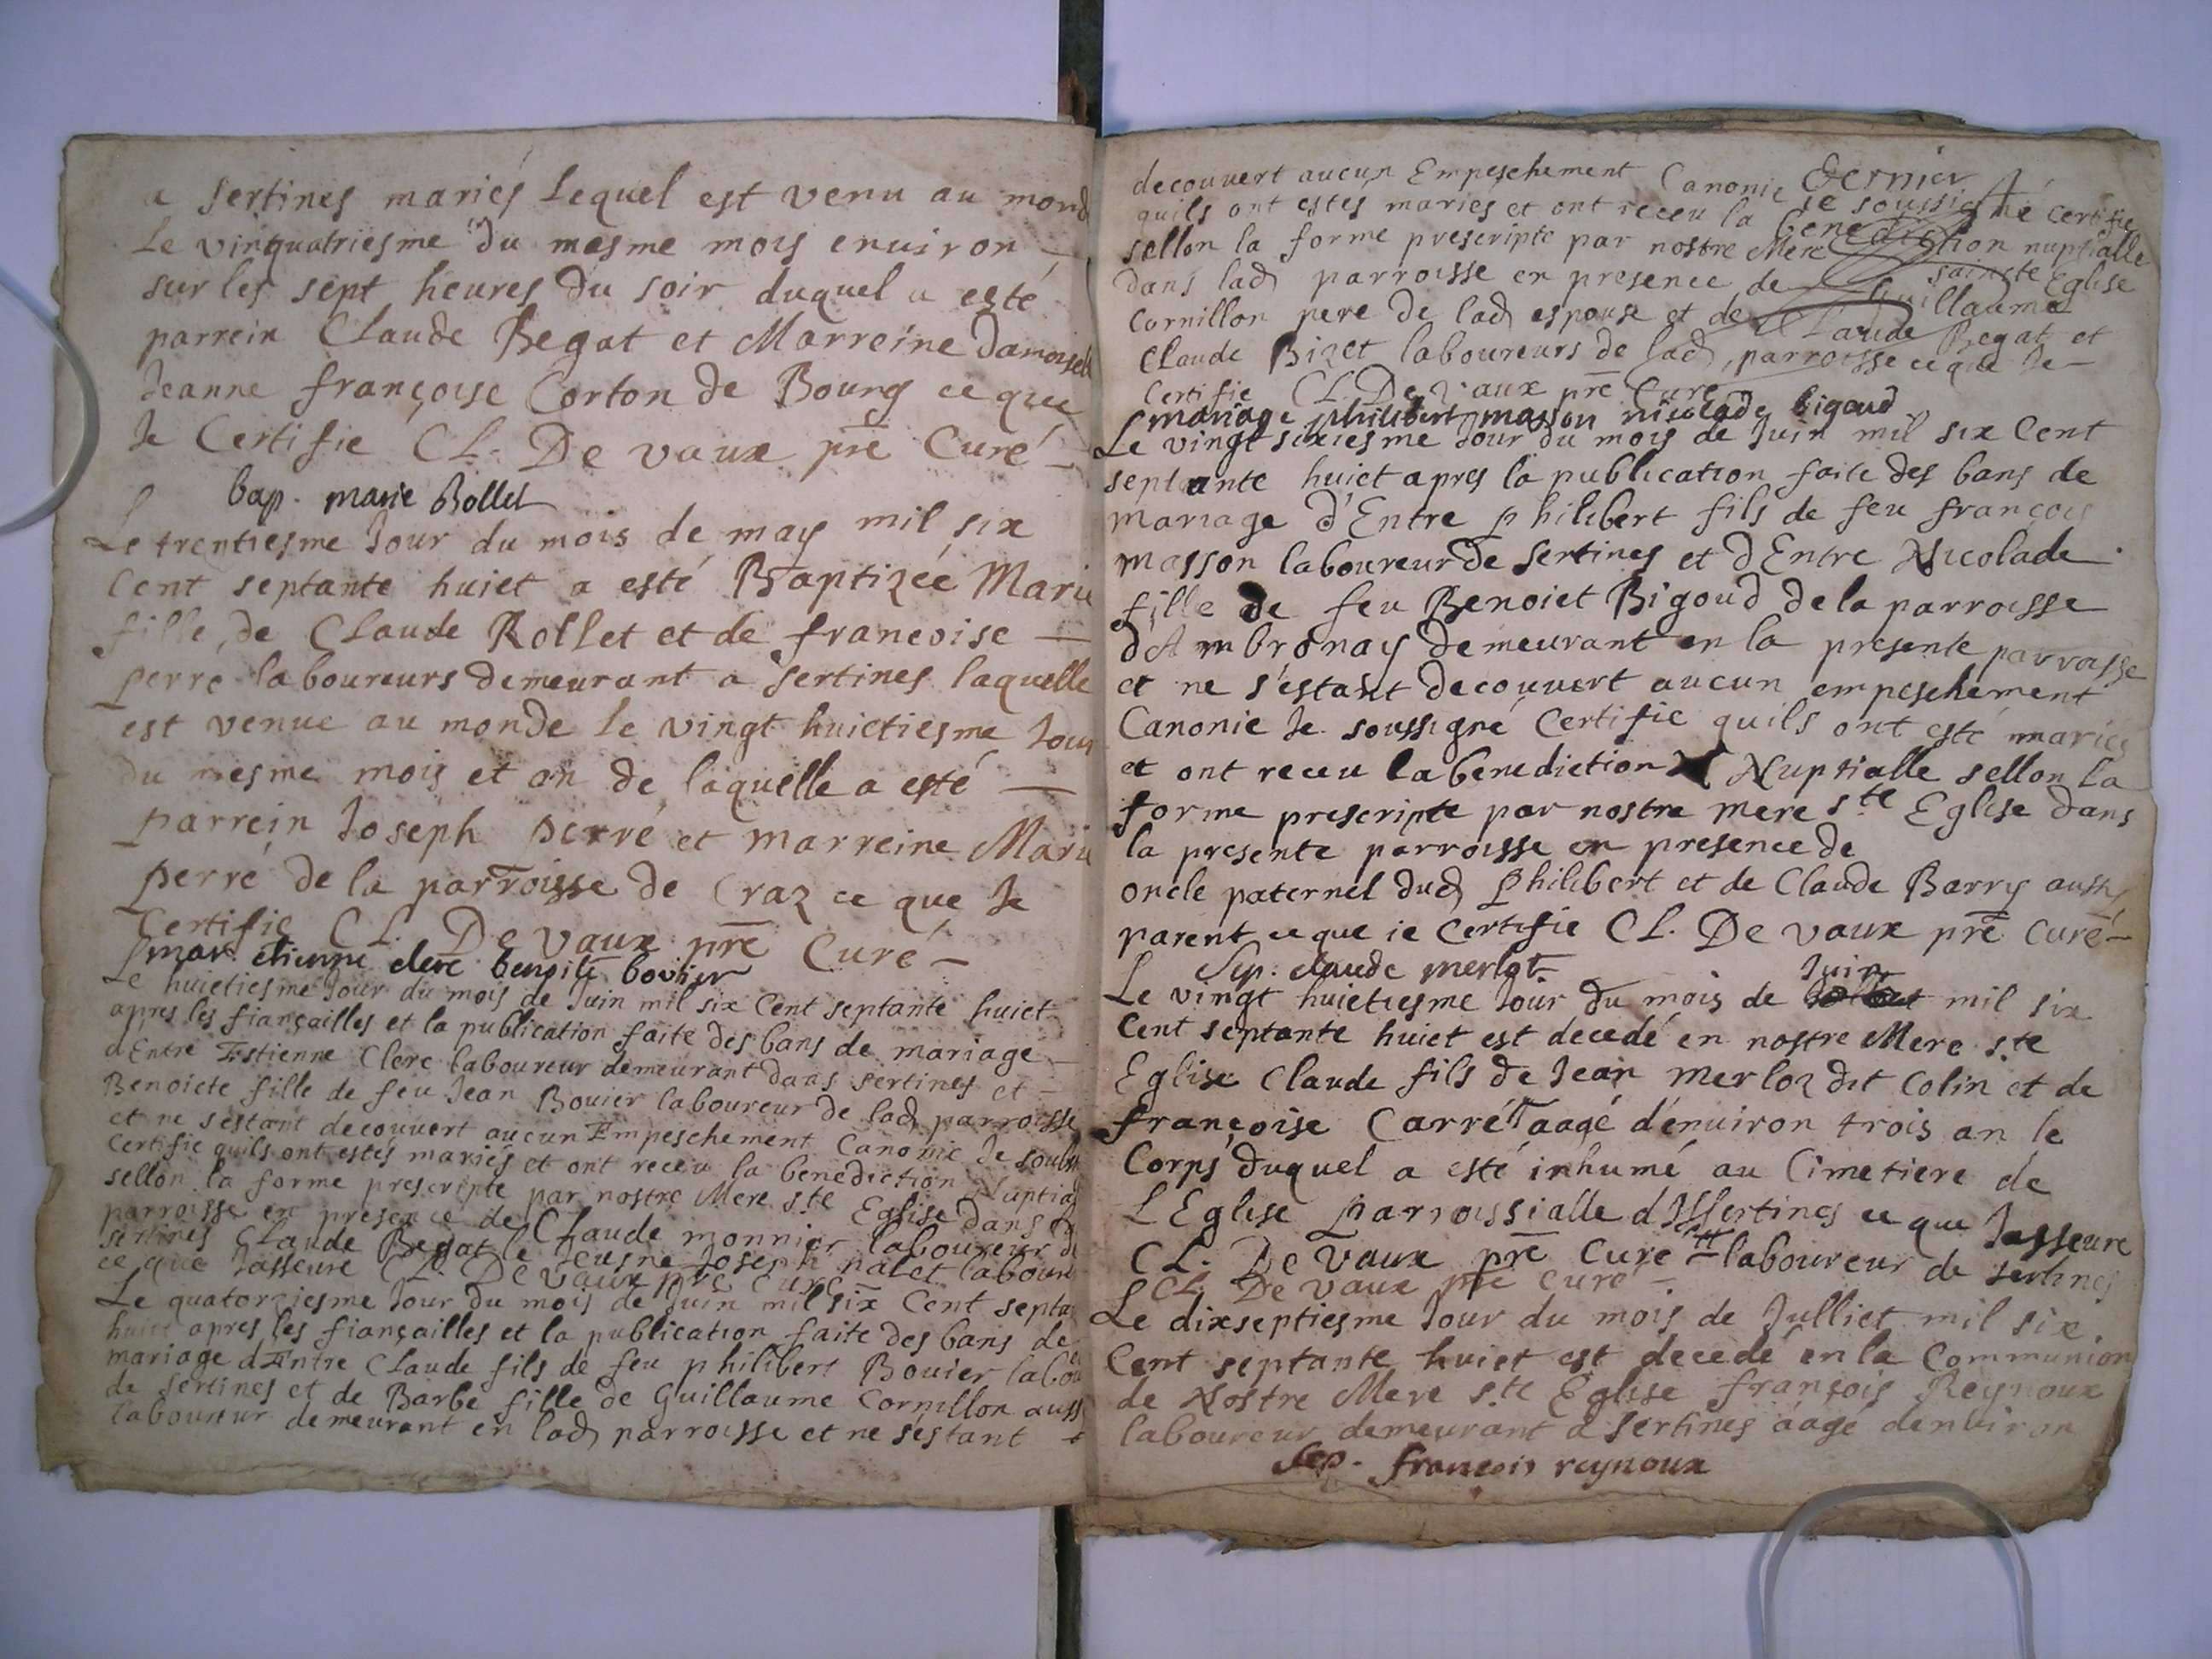 a sertines mariés lequel est venu au mond
le vintquatriesme du mesme mois enuiron —
sur les sept heures du soir duquel a esté
parrein Claude Begat et Marreine damoisell
Jeanne françoise Corton de Bourg ce que
Je Certifie CL. De vaux pre Curé —
bap. marie Rollet
Le trentiesme Jour du mois de may mil six
Cent septante huict a esté Baptizée Marie
fille de Claude Rollet et de francoise —
perre laboureurs demeurant a sertines laquelle
est venue au monde le vingt huictiesme Jour
du mesme mois et an de laquelle a esté —
parrein Joseph perré et marreine Marie
perré de la parroisse de Craz ce que Je
Certifie CL. De vaux pre Curé —
mar. etienne clerc benoite bovier
Le huictiesme Jour du mois de Juin mil six Cent septante huict
apres les fiançailles et la publication faite des bans de mariage
d'Entre Estienne Clerc laboureur demeurant dans sertines et —
Benoicte fille de feu Jean Bouier laboureur de lad parroisse
et ne s'estant decouuert aucun Empeschement Canonic Je soub
Certifie quils ont estés mariés et ont receu la benediction Nuptia
sellon la forme prescripte par nostre Mere ste Eglise dans
parroisse en presence de Claude monnier laboureur d
sertines Claude Begat le Jeusne Joseph nalet labour
ce que Jasseure CL. De vaux pre Curé
Le quatorziesme Jour du mois de Juin mil six Cent septa
huict apres les fiançailles et la publication faite des bans de
mariage d'Entre Claude fils de feu philibert Bouier labou
de sertines et de Barbe fille de Guillaume Cornillon auss
laboureur demeurant en lad parroisse et ne s'estant
decouvert aucun Empeschement Canonic Je soussigné certifie
dernier
quils ont estés mariés et ont receu la benediction nuptialle
sellon la forme prescripte par nostre Mere saincte Eglise
dans lad parroisse en presence de Guillaume
Cornillon pere de lad espouse et de Claude Begat et
Claude Bizet laboureurs de lad parroisse ce que Je —
Certifie CL. De Vaux pre Curé
mariage philibert masson nicolade bigoud
Le vingt sixiesme Jour du mois de Juin mil six Cent
septante huict apres la publication faite des bans de
mariage d'Entre philibert fils de feu françois
masson laboureur de sertines et d'Entre Nicolade
fille de feu Benoict Bigoud de la parroisse
d'Ambronay demeurant en la presente parroisse
et ne s'estant decouuert aucun empeschement
Canonic Je soussigné Certifie quils ont esté mariés
et ont receu la benediction Nuptialle sellon la
forme prescripte par nostre mere ste Eglise dans
la presente parroisse en presence de
oncle paternel dud philibert et de Claude Barry aussy
parent ce que ie Certifie CL. De vaux pre Curé —
Sep. claude merlot
Le vingt huictiesme Jour du mois de Juin mil six
Cent septante huict est decedé en nostre Mere ste
Eglise Claude fils de Jean merloz dit Colin et de
françoise Carré aagé d'enuiron trois an le
Corps duquel a esté inhumé au Cimetiere de
L'Eglise parroissialle d'Issertines ce que Jasseure
CL. De Vaux pre Curé # laboureur de sertines
CL. De vaux pre curé —
Le dixseptiesme Jour du mois de Julliet mil six
Cent septante huict est decedé en la Communion
de Nostre Mere ste Eglise françois Reynoux
laboureur demeurant a sertines aagé denuiron
Sep. francois reynoux